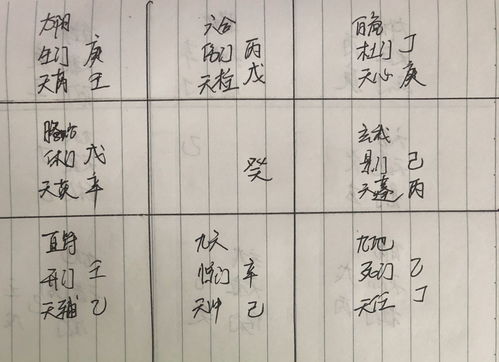 太阴
生门 庚
天芮 壬
六合
伤门 丙
天柱 戊
白虎
杜门 丁
天心 庚
螣蛇
休门 戊
天英 辛
癸
玄武
景门 己
天蓬 丙
直符
开门 壬
天辅 乙
九天
惊门 辛
天冲 己
九地
死门 乙
天任 丁